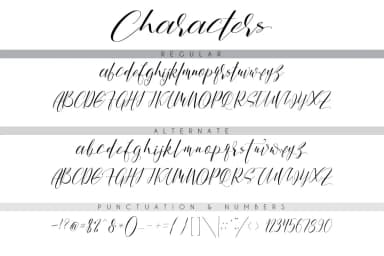 Characters
REGULAR
abcdefghijklmnopqrstuvwxyz
ABCDEFGHIJKLMNOPQRSTUVWXYZ
ALTERNATE
abcdefghijklmnopqrstuvwxyz
ABCDEFGHIJKLMNOPQRSTUVWXYZ
PUNCTUATION & NUMBERS
1234567890